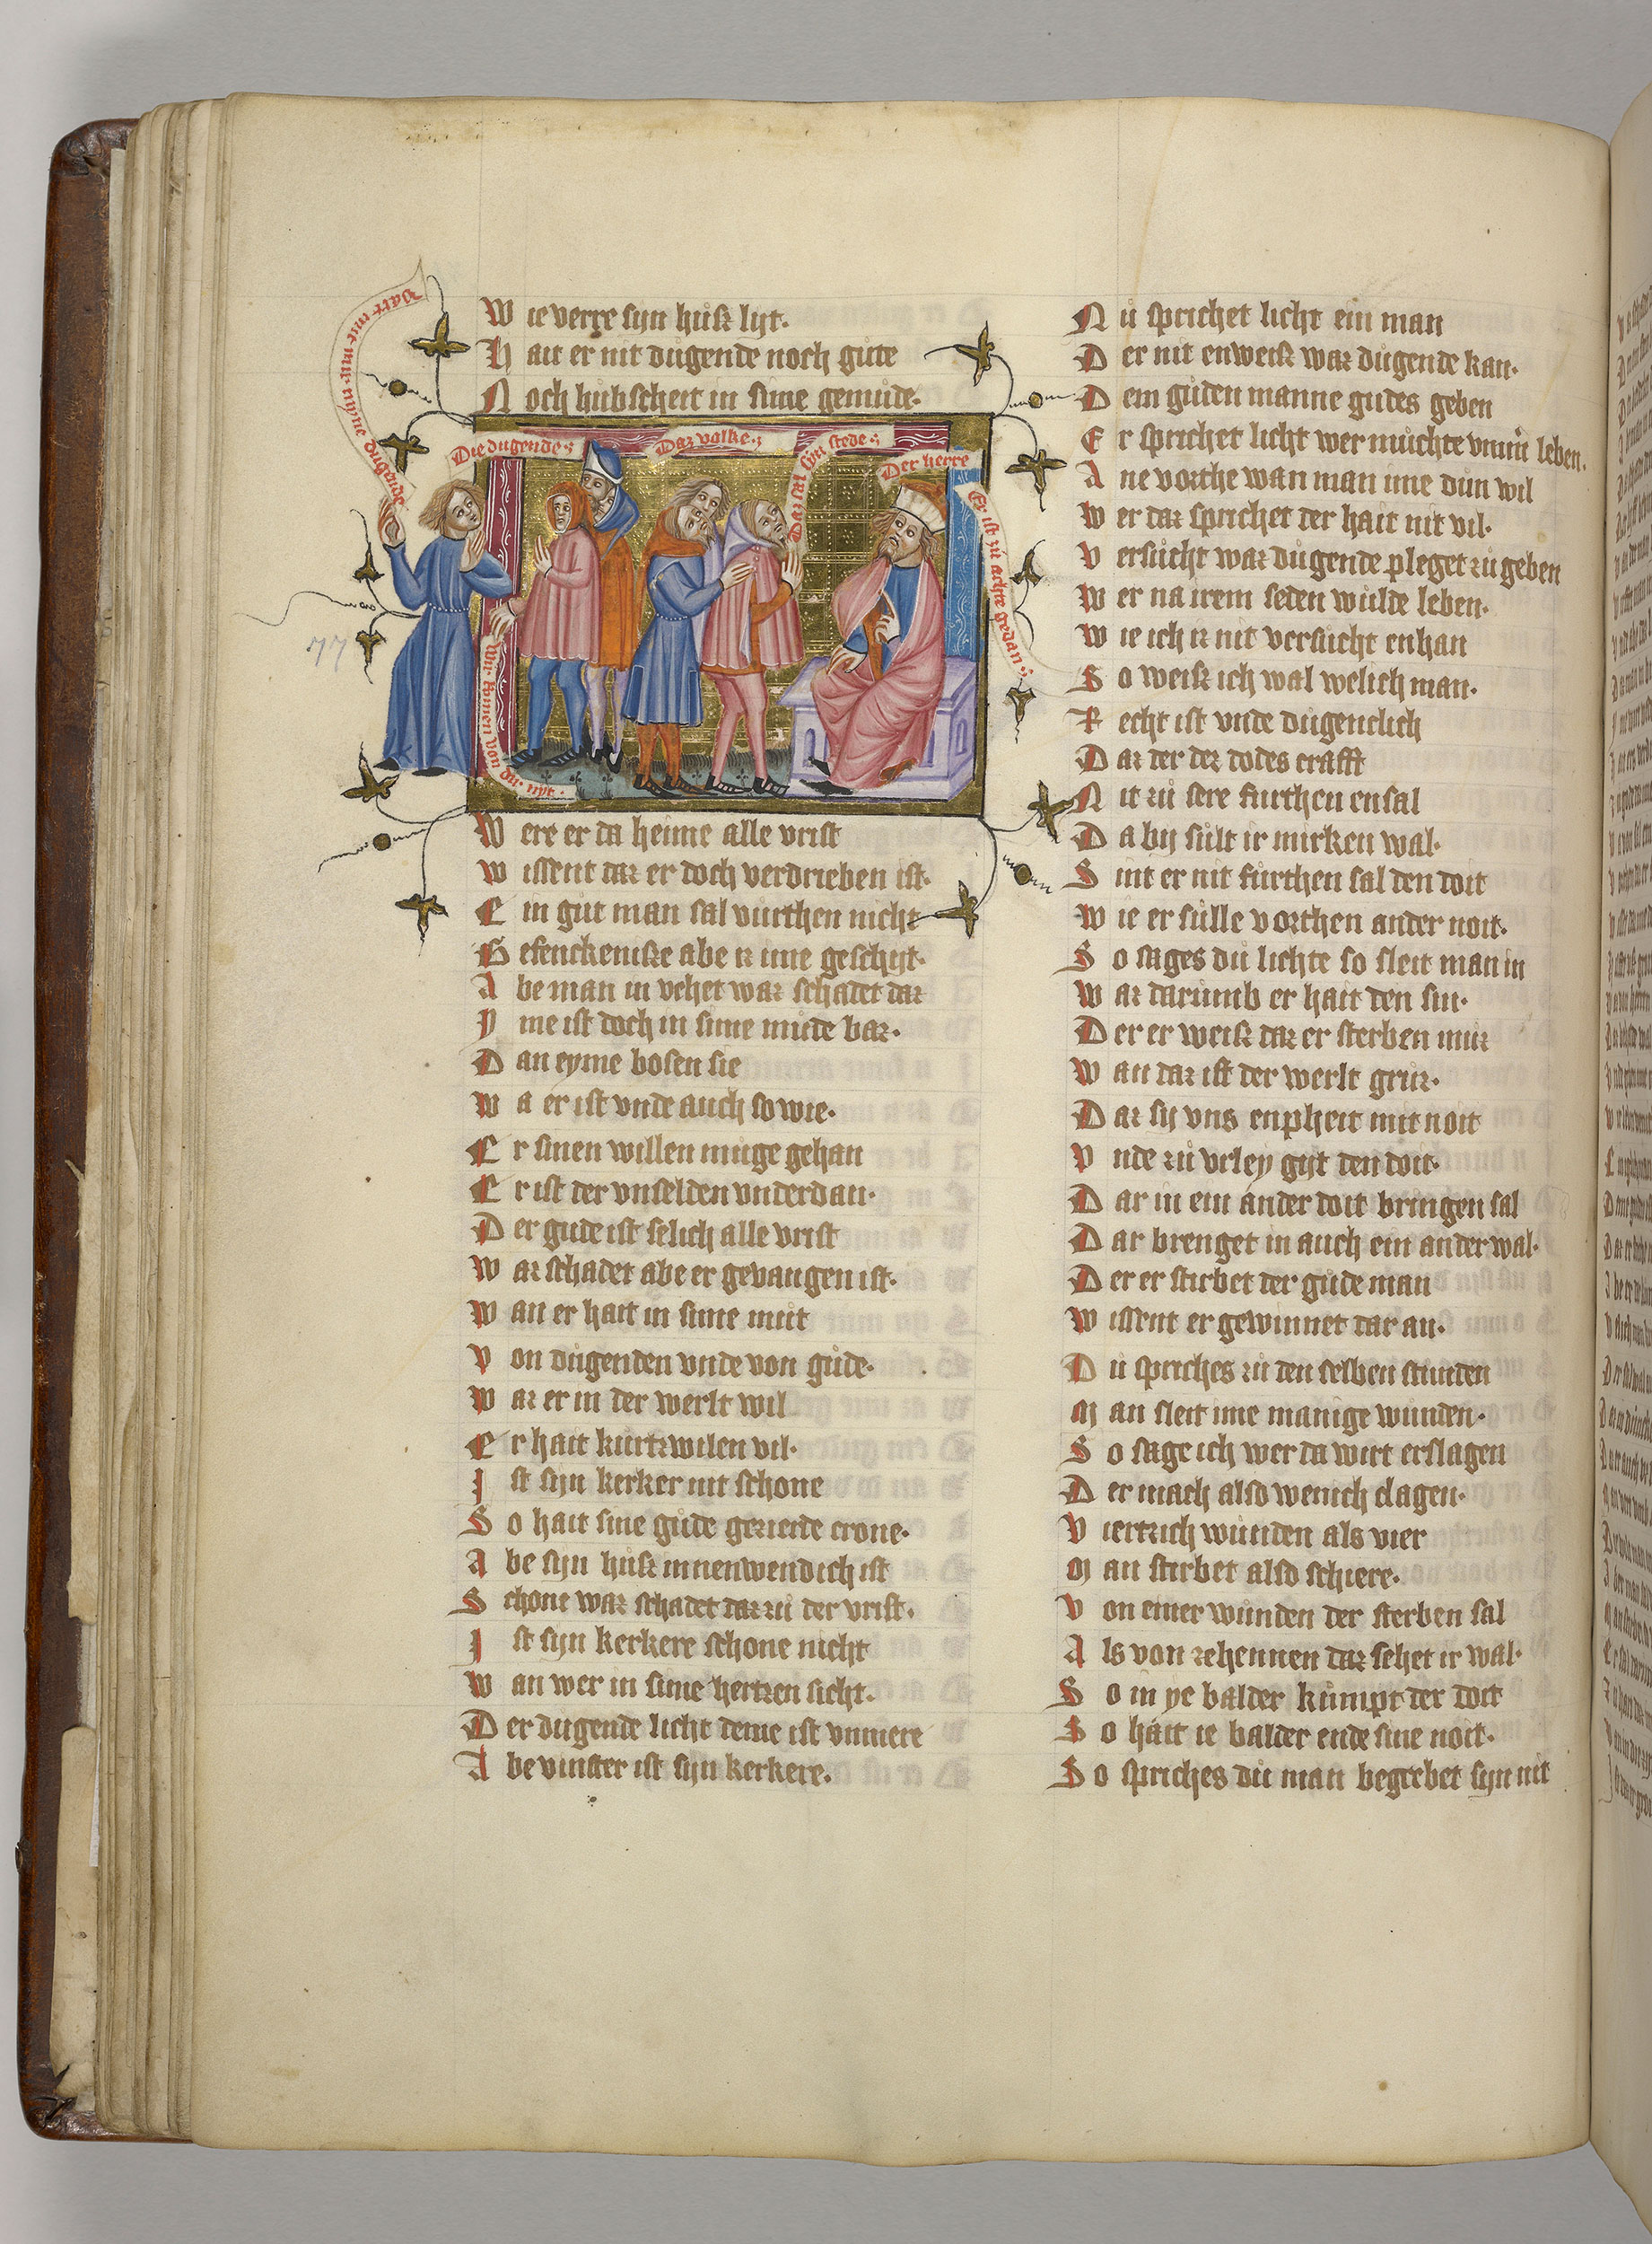 Wie verre syn huſz lyt.
Hait er nit dugende noch gute
Noch hubſcheit in ſime gemude.
Vart mit mir myne dugende
Die dugende
Daz volke
Daz ſal ſyn ſtede
Der herre
Er iſt zu achte gedan
Wir kumen von dir nyt.
77
Were er da heime alle vriſt
Wiſſent daz er doch verdrieben iſt.
Ein gut man ſal vurthen nicht
Gefenckeniſze abe iz ime geſchyt.
Abe man in vehet waz ſchadet daz
Ime iſt doch in ſime mude baz.
Dan eyme boſen ſie
Wa er iſt vnde auch ſo wie.
Er ſinen willen muge gehan
Er iſt der vnſelden vnderdan.
Der gude iſt ſelich alle vriſt
Waz ſchadet abe er gevangen iſt.
Wan er hait in ſime muit
Von dugenden vnde von gude.
Waz er in der werlt wil
Er hait kurtzwilen vil.
Iſt ſyn kerker nit ſchone
So hait ſine gude gezierde crone.
Abe ſyn huſz innenwendich iſt
Schone waz ſchadet daz zu der vriſt.
Iſt ſyn kerkere ſchone nicht
Wan wer in ſime hertzen ſicht.
Der dugende licht deme iſt vnmere
Abe vinſter iſt ſyn kerkere.
Nu ſprichet licht ein man
Der nit enweiſz waz dugende kan.
Dem guden manne gudes geben
Er ſprichet licht wer muchte vmmer leben.
Ane vorthe wan man ime dun wil
Wer daz ſprichet der hait nit vil.
Verſucht waz dugende pleget zu geben
Wer na irem ſeden wulde leben.
Wie ich iz nit verſucht enhan
So weiſz ich wal welich man.
Recht iſt vnde dugentlich
Daz der dez dodes crafft
Nit zu ſere furthen enſal
Da by ſult ir mirken wal.
Sint er nit furthen ſal den doit
Wie er ſulle vorthen ander noit.
So ſages du lichte ſo ſleit man in
Waz darumb er hait den ſin.
Der er weiſz daz er ſterben muz
Wan daz iſt der werlt gruz.
Daz ſy vns enpheit mit noit
Vnde zu vrley gyt den doit.
Daz in ein ander doit bringen ſal
Daz brenget in auch ein ander wal.
Der er ſtirbet der gude man
Wiſſent er gewinnet dar an.
Du ſpriches zu den ſelben ſtunden
Man ſleit ime manige wunden.
So ſage ich wer da wirt erſlagen
Der mach alſo wenich clagen.
Viertzich wunden als vier
Man ſtirbet alſo ſchiere.
Von einer wunden der ſterben ſal
Als von zehennen daz ſehet ir wal.
So in ye balder kumpt der doit
So hait ie balder ende ſine noit.
So ſpriches du man begrebet ſyn nit